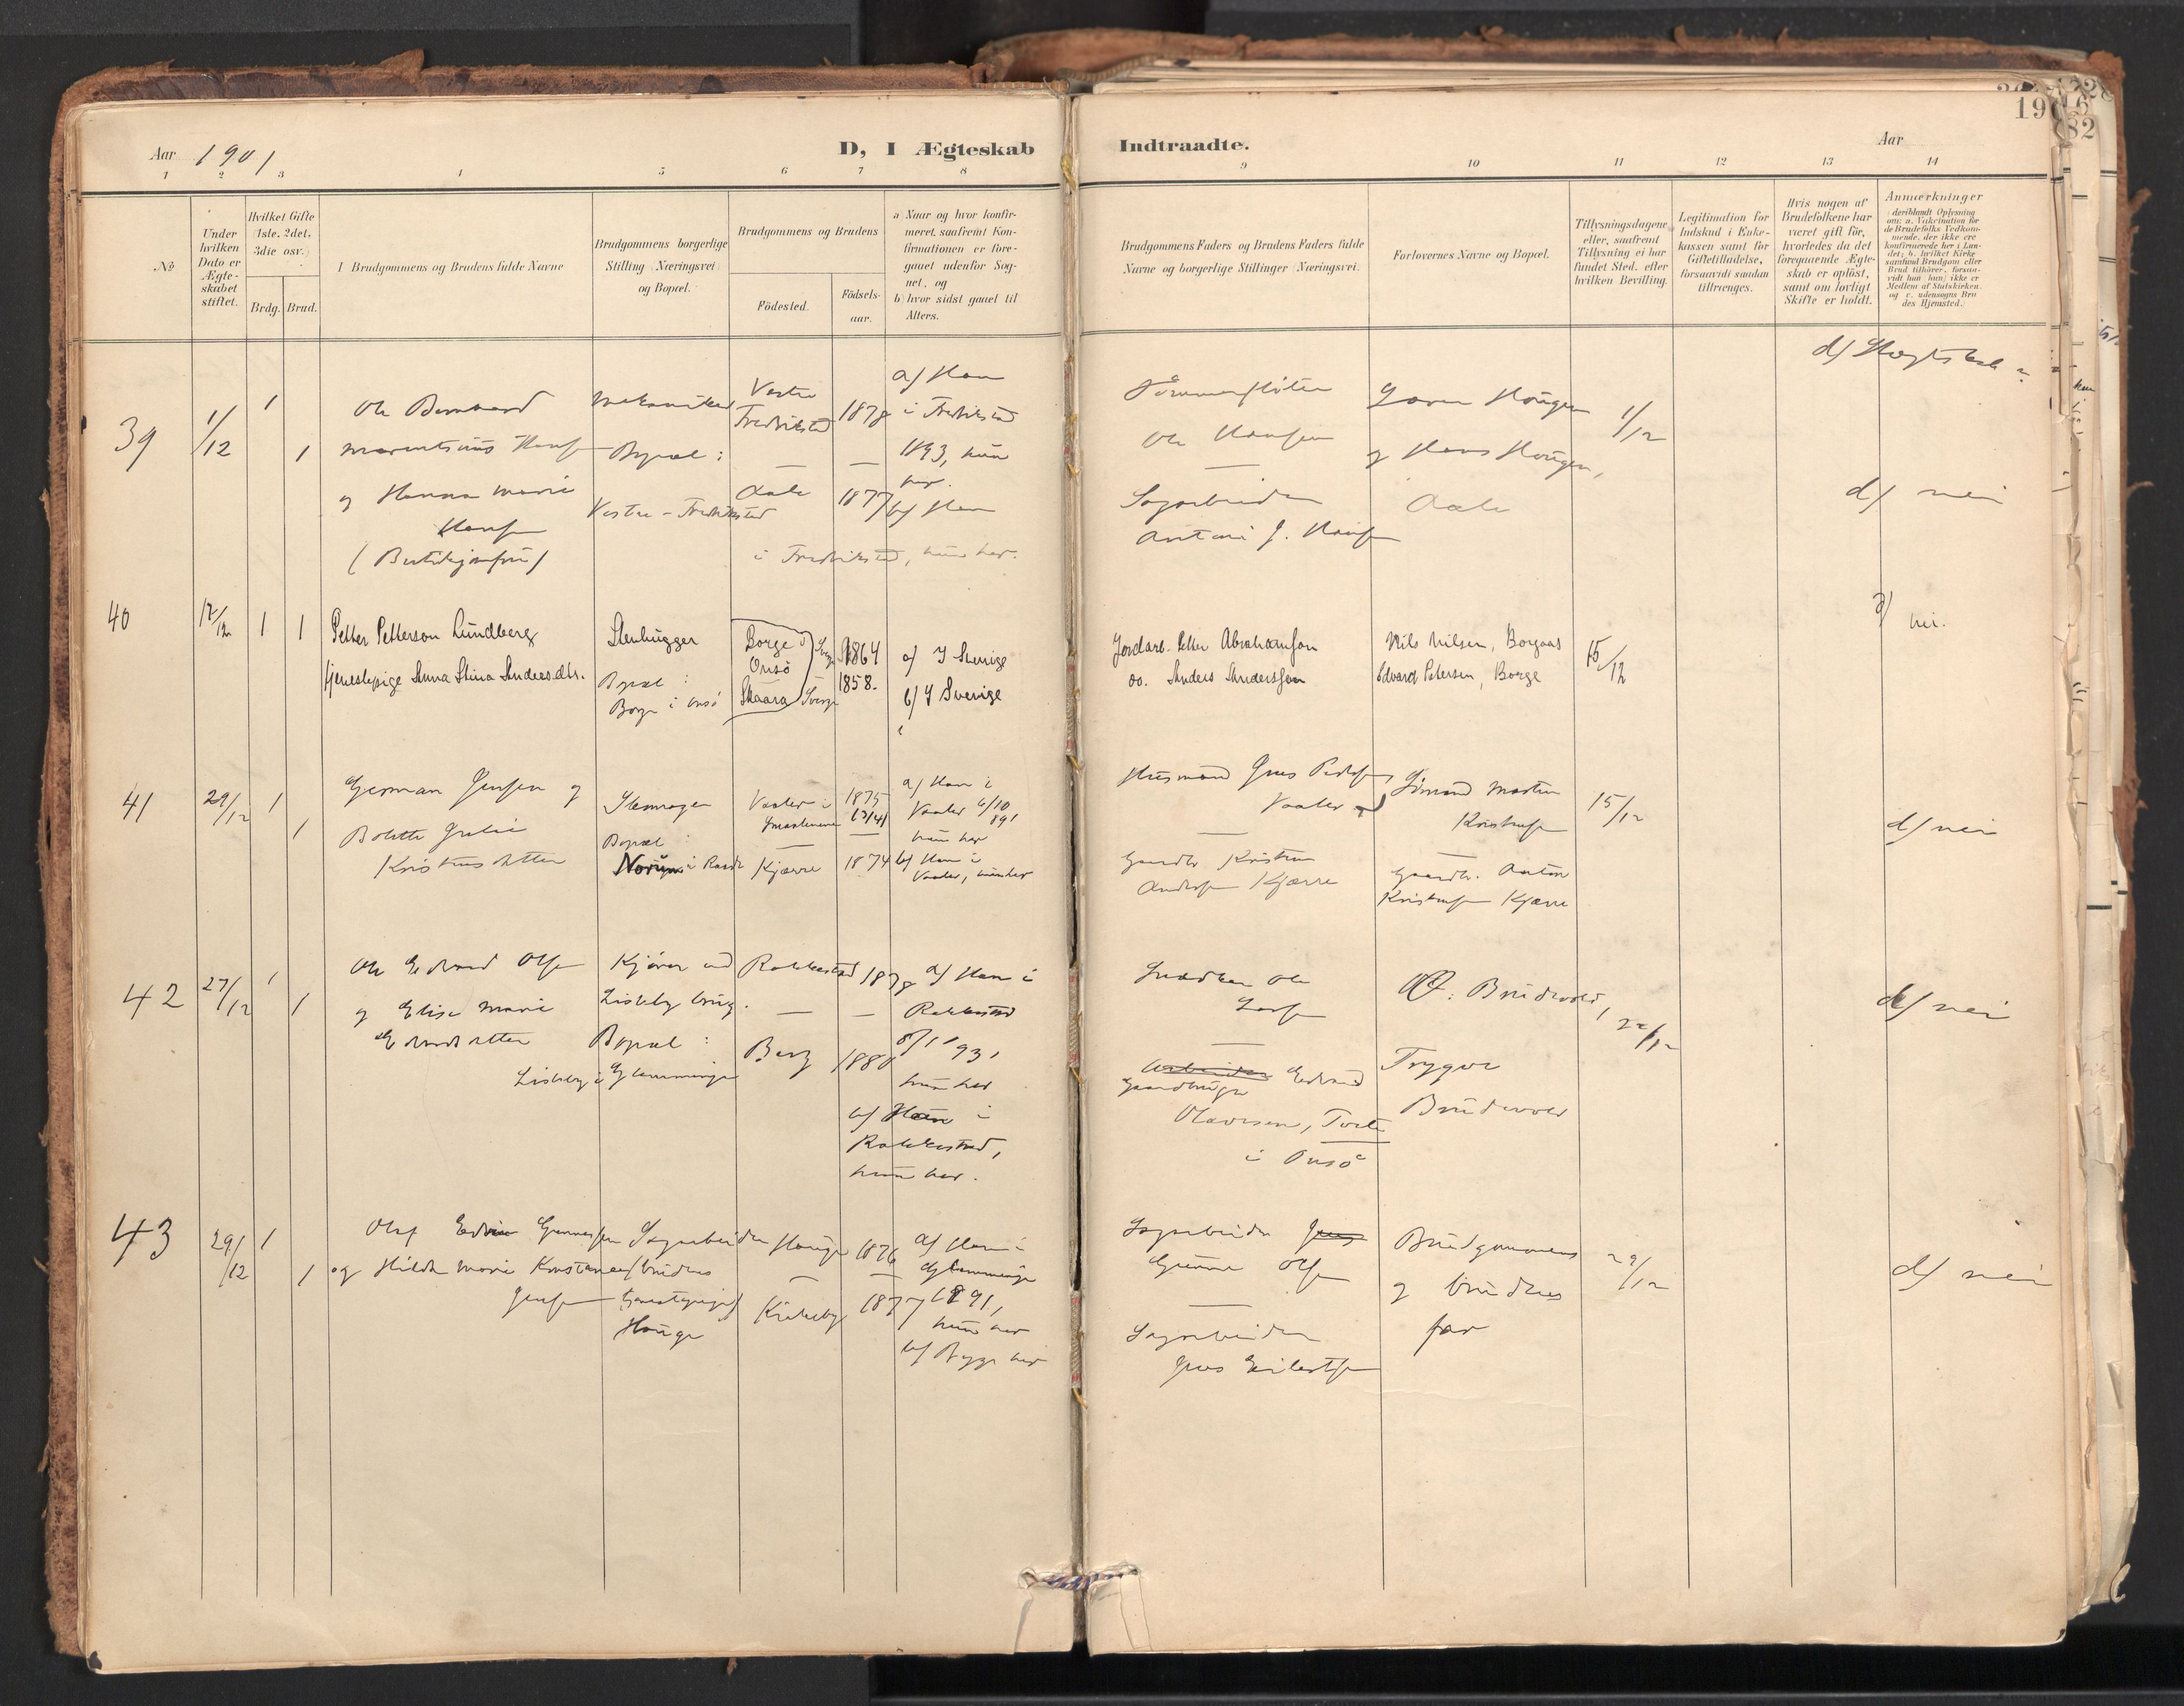 Aar 1901
D, I Ægteskab
Indtraadte.
Aar
19
82
1 2 3 4 5 6 7 8
9 10 11 12 13 14
No
Under hvilken Dato er Ægteskabet stiftet.
Hvilket Gifte (1ste, 2det, 3die osv.)
Brdg. Brud.
1 Brudgommens og Brudens fulde Navne
Brudgommens borgerlige Stilling (Næringsvei) og Bopæl.
Brudgommens og Brudens
Födested.
Födsels-aar.
a) Naar og hvor konfir-
meret, saafremt Kon-
firmationen er fore-
gaaet udenfor Sog-
net, og
b) hvor sidst gaaet til
Alters.
Brudgommens Faders og Brudens Faders fulde
Navne og borgerlige Stillinger (Næringsvei).
Forlovernes Navne og Bopæl.
Tillysningsdagene
eller, saafremt
Tillysning ei har
fundet Sted, efter
hvilken Bevilling.
Legitimation for
Indskud i Enke-
kassen samt for
Giftetilladelse,
forsaavidt saadan
tiltrænges.
Hvis nogen af
Brudefolkene har
været gift för,
hvorledes da det
foregaaende Ægte-
skab er oplöst,
samt om lovligt
Skifte er holdt.
Anmærkninger
(deriblandt Oplysning
om: a. Vakcination for
de Brudefolks Vedkom-
mende, der ikke ere
konfirmerede her i Lan-
det; b. hvilket Kirke-
samfund Brudgom eller
Brud tilhörer, forsaa-
vidt han (hun) ikke er
Medlem af Statskirken,
og c. udensogns Bru-
des Hjemsted.)
39 1/12 1 1
Ole Bernhard
Marentsius Hansen
og Hanna Marie
Hansen
Mekaniker
Bopæl:
Vestre-Fredrikstad
Vestre
Fredrikstad 1878
Aale 1877
a/ Han
i Fredrikstad
1893, hun
her.
b/ Han
i Fredrikstad, hun her.
Tömmerflöter
Ole Hansen
Sagarbeider
Antoni J. Hansen
og Hans Haugen,
Aale
1/12
d/ nei
40 17/12 1 1
Petter Petterson Lundberg
Tjenestepige Anna Stina Andersdtr.
Stenhugger
Bopæl:
Borge i Onsö
Borge i
Onsö
Skaara Sverige
1864
1858.
a/ I Sverige
b/ I Sverige
Jordarb. Petter Abrahamson
do. Anders Andersson
Nils Nilsen, Borgaas
Edvard Petersen, Borge
15/12
d/ nei.
41 29/12 1 1
Herman Jensen og
Bolette Julie
Kristiansdatter
Bopæl:
i Raade
Vaaler i
Smaalenene
Kjærre
1875
1874
a/ Han i
Vaaler 4/10
891
hun her
b/ Han i
Vaaler, hun her
Husmand Jens Pedersen
Vaaler
Gaardbr. Kristian
Andersen Kjærre
Martin
Kristiansen
Gaardbr. Anton
Kristiansen Kjærre
15/12
d/ nei
42 27/12 1 1
Ole Edvard Olsen
og Elise Marie
Edvardsdatter
Kjörer ved
Lisleby brug.
Bopæl:
Lisleby i Glemminge
Rakkestad 1878
Berg 1880
a/ Han i
Rakkestad
93,
hun her
b/ Han i
Rakkestad,
hun her.
Snedker Ole
Larsen
Arbeider Edvard
Gaardbruger
Olavesen, Torp
i Onsö
Brudevold,
Trygve
Brudevold
22/12
d/ nei
43 29/12 1 1
Olaf Edvin Gunnersen
og Hilda Marie Konstance
Jensen
Sagarbeider
(brudens
tjenestepige)
Hauge
Hauge 1876
Kirkeby 1877
a/ Han i
Glemminge
1891,
hun her
b/ Begge her
Sagarbeider Jens
Gunner Olsen
Sagarbeider
Jens Eilertsen
Brudgommens
og brudens
far
29/12
d/ nei